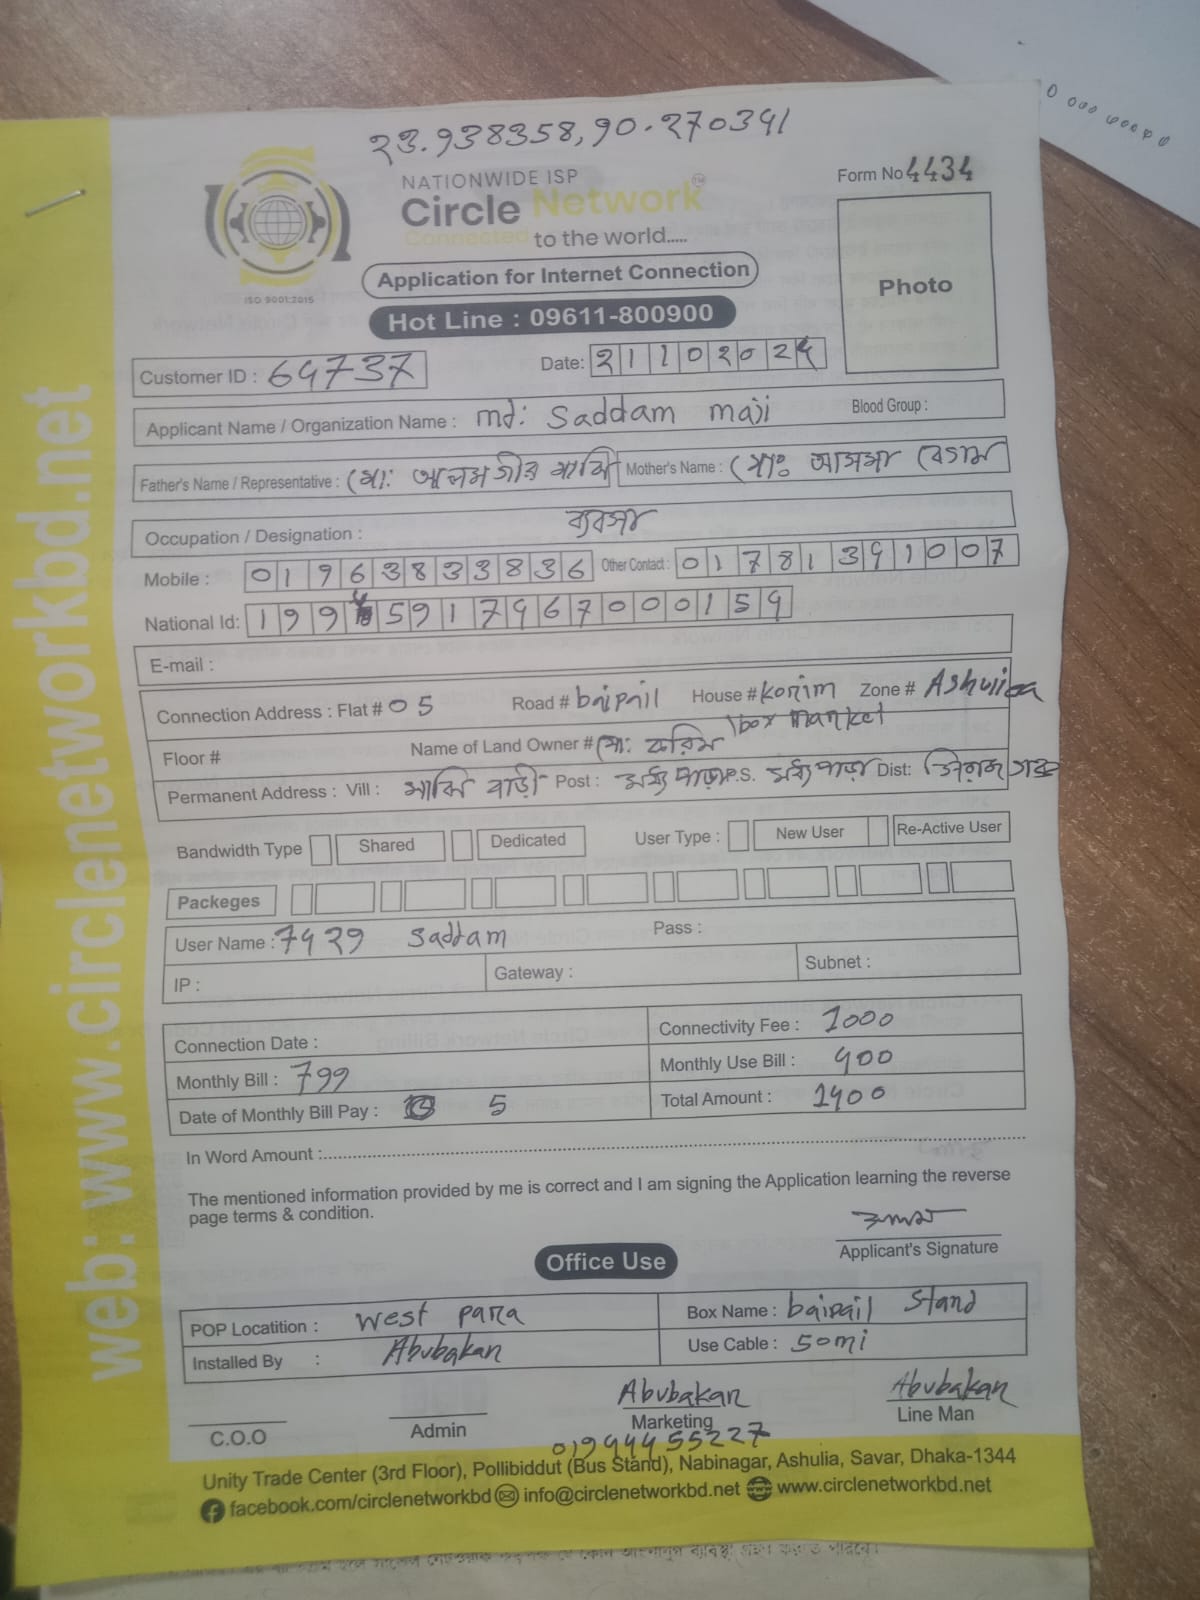 23.938358, 90.270341
NATIONWIDE ISP
Form No 4434
Circle Network
TM
Connected to the world.....
ISO 9001:2015
Application for Internet Connection
Photo
Hot Line : 09611-800900
Customer ID : 64737 Date: 21102024
Applicant Name / Organization Name : md: Saddam maji Blood Group :
Father's Name / Representative : মো: আলমগীর মাঝি Mother's Name : মোাঃ আসমা বেগম
Occupation / Designation : ব্যবসা
Mobile : 01963833836 Other Contact : 01781391007
National Id: 199 5917967000159
E-mail :
Connection Address : Flat # 05 Road # baipail House # Korim box Market Zone # Ashuliaa
Floor # Name of Land Owner # মো: করিম
Permanent Address : Vill : মাঝি বাড়ী Post : মধ্য পাড়া P.S. মধ্যপাড়া Dist: সিরাজগঞ্জ
Bandwidth Type Shared Dedicated User Type : New User Re-Active User
Packeges
User Name : 7429 Saddam Pass :
IP : Gateway : Subnet :
Connection Date : Connectivity Fee : 1000
Monthly Bill : 799 Monthly Use Bill : 400
Date of Monthly Bill Pay : 5 Total Amount : 1400
In Word Amount :
The mentioned information provided by me is correct and I am signing the Application learning the reverse
page terms & condition.
Applicant's Signature
Office Use
POP Locatition : West Para Box Name : baipail Stand
Installed By : Abubakar Use Cable : 50mi
Abubakar Abubakar
C.O.O Admin Marketing Line Man
01944455227
Unity Trade Center (3rd Floor), Pollibiddut (Bus Stand), Nabinagar, Ashulia, Savar, Dhaka-1344
facebook.com/circlenetworkbd info@circlenetworkbd.net www.circlenetworkbd.net
web: www.circlenetworkbd.net